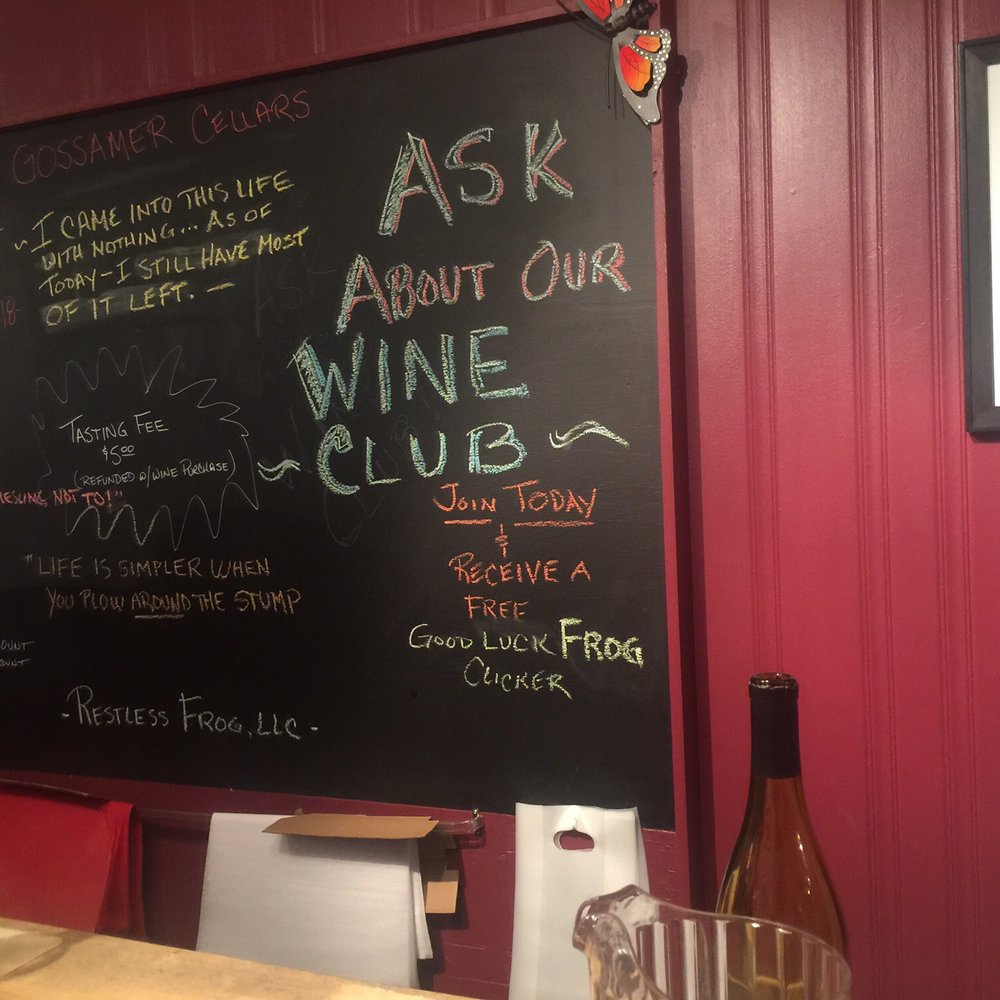 GOSSAMER CELLARS
~ I CAME INTO THIS LIFE
WITH NOTHING... AS OF
TODAY - I STILL HAVE MOST
OF IT LEFT. —
18-
TASTING FEE
$5.00
(REFUNDED W/WINE PURCHASE)
NOT TO!"
"LIFE IS SIMPLER WHEN
YOU PLOW AROUND THE STUMP
OUNT
OUNT
- RESTLESS FROG, LLC -
ASK
ABOUT OUR
WINE
~ CLUB ~
JOIN TODAY
&
RECEIVE A
FREE
GOOD LUCK FROG
CLICKER